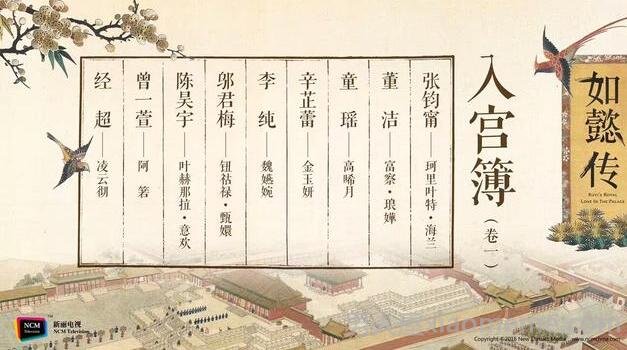 如懿传
RUYI'S ROYAL
LOVE IN THE PALACE
入宫簿
（卷一）
张钧甯——珂里叶特·海兰
董洁——富察·琅嬅
童瑶——高晞月
辛芷蕾——金玉妍
李纯——魏嬿婉
邬君梅——钮祜禄·甄嬛
陈昊宇——叶赫那拉·意欢
曾一萱——阿箬
经超——凌云彻
NCM
Television
TM
新丽电视
NCM Television
Copyright ©2016 New Classics Media